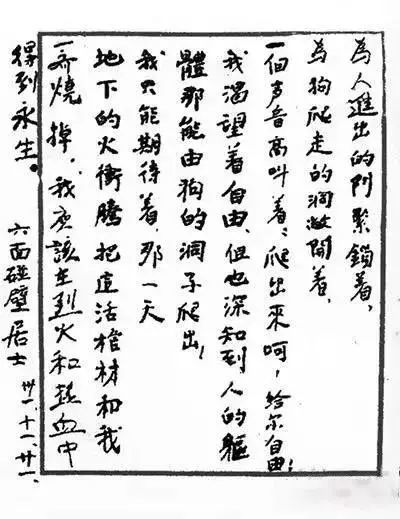 為人進出的門緊鎖着，
為狗爬走的洞敞開着，
一個声音高叫着：爬出來呵，給尔自由！
我渴望着自由，但也深知到人的軀
體那能由狗的洞子爬出！
我只能期待着，那一天
地下的火衝騰把這活棺材和我
一齐燒掉，我应該在烈火和热血中
得到永生。
六面碰壁居士 卅一、十一、廿一、